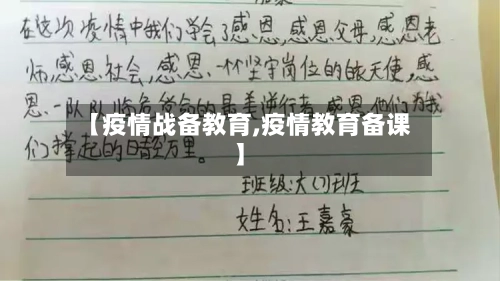 在这次疫情中我们学会了感恩,感恩父母,感恩老
师,感恩社会,感恩一怀坚守岗位的白衣天使,感
恩一队队临危受命的最美逆行者,感恩他们为我
们撑起的晴空万里。
【疫情战备教育,疫情教育备课
】
班级:六(1)班
姓名:王嘉豪